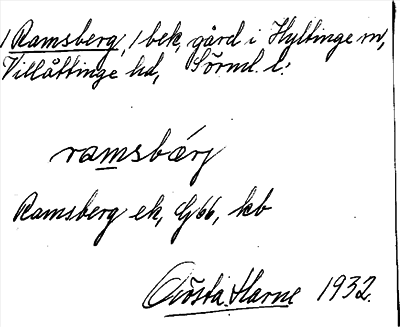 1 Ramsberg, 1 bek, gård i Hyltinge sn,
Villåttinge hd, Sörml. l.
ramsbærj
Ramsberg ek, G66, kb
Gösta Harne 1932.